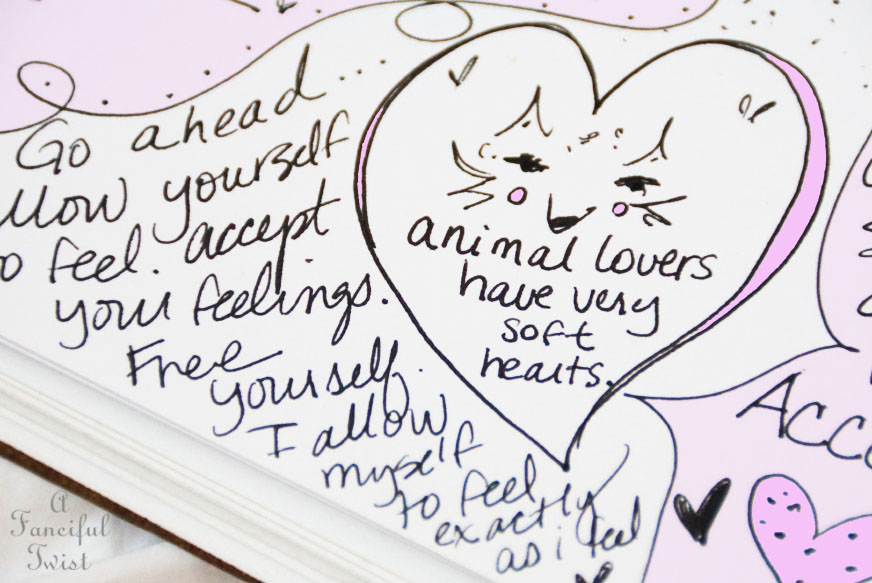 Go ahead...
allow yourself
to feel. accept
your feelings.
Free
yourself.
I allow
myself
to feel
exactly
as i feel
animal lovers
have very
soft
hearts.
A
Fanciful
Twist